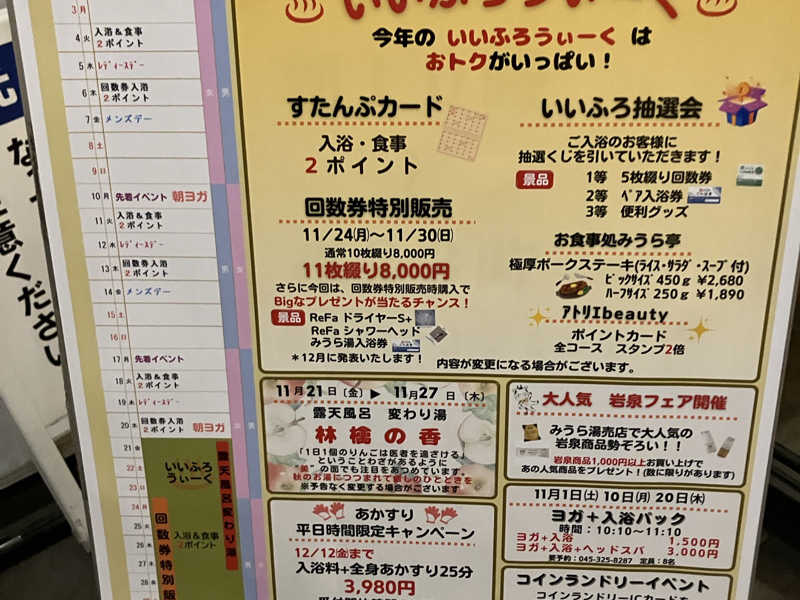 いいふろうぃーく
今年の いいふろうぃーく は
おトクがいっぱい！
すたんぷカード
入浴・食事
2 ポイント
回数券特別販売
11/24(月)〜11/30(日)
通常10枚綴り8,000円
11枚綴り8,000円
さらに今回は、回数券特別販売時購入で
Bigなプレゼントが当たるチャンス！
景品 ReFa ドライヤーS+
ReFa シャワーヘッド
みうら湯入浴券
＊12月に発表いたします！
いいふろ抽選会
ご入浴のお客様に
抽選くじを引いていただきます！
景品 1等 5枚綴り回数券
2等 ペア入浴券
3等 便利グッズ
お食事処みうら亭
極厚ポークステーキ(ライス・サラダ・スープ 付)
ビックサイズ 450g ¥2,680
ハーフサイズ 250g ¥1,890
アトリエbeauty
ポイントカード
全コース スタンプ2倍
内容が変更になる場合がございます。
3 月
4 火 入浴＆食事
2ポイント
5 水 レディースデー
6 木 回数券入浴
2ポイント
7 金 メンズデー
8 土
9 日
10 月 先着イベント 朝ヨガ
11 火 入浴＆食事
2ポイント
12 水 レディースデー
13 木 回数券入浴
2ポイント
14 金 メンズデー
15 土
16 日
17 月 先着イベント
18 火 入浴＆食事
2ポイント
19 水 レディースデー
20 木 回数券入浴 朝ヨガ
2ポイント
21 金
22 土
23 日
24 月
25 火
26 水
27 木
28 金
女 男
男 女
女 男
いいふろ
うぃーく
露天風呂変わり湯
回数券特別販
入浴＆食事
2ポイント
11月21日〔金〕▶ 11月27日〔木〕
露天風呂 変わり湯
林檎の香
「1日1個のりんごは医者を遠ざける」
ということわざがあるように
"美"の面でも注目をあつめています。
秋のお湯につつまれて癒しのひとときを
※予告なく変更する場合がございます
大人気 岩泉フェア開催
みうら湯売店で大人気の
岩泉商品勢ぞろい！！
岩泉商品1,000円以上お買い上げで
あの人気商品をプレゼント！(数に限りがあります)
あかすり
平日時間限定キャンペーン
12/12㊎まで
入浴料+全身あかすり25分
3,980円
11月1日(土) 10日(月) 20日(木)
ヨガ＋入浴パック
時間：10:10〜11:10
ヨガ+入浴 1,500円
ヨガ+入浴+ヘッドスパ 3,000円
要予約：045-325-8287 定員：8名
コインランドリーイベント
コインランドリーICカードを